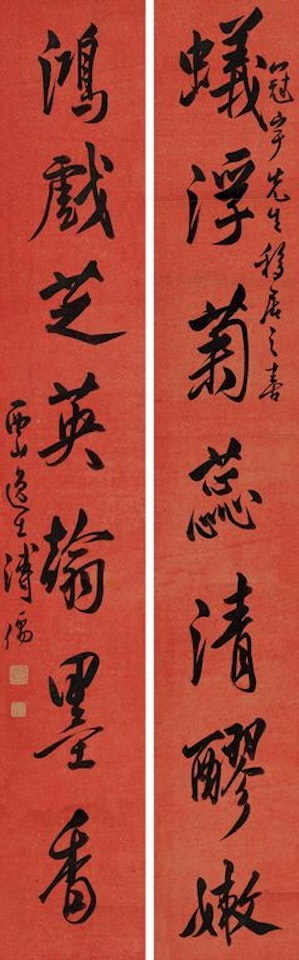 冠宇先生移居之喜
蟻浮菊蕊清醪嫩
鴻戲芝英翰墨香
西山逸士溥儒